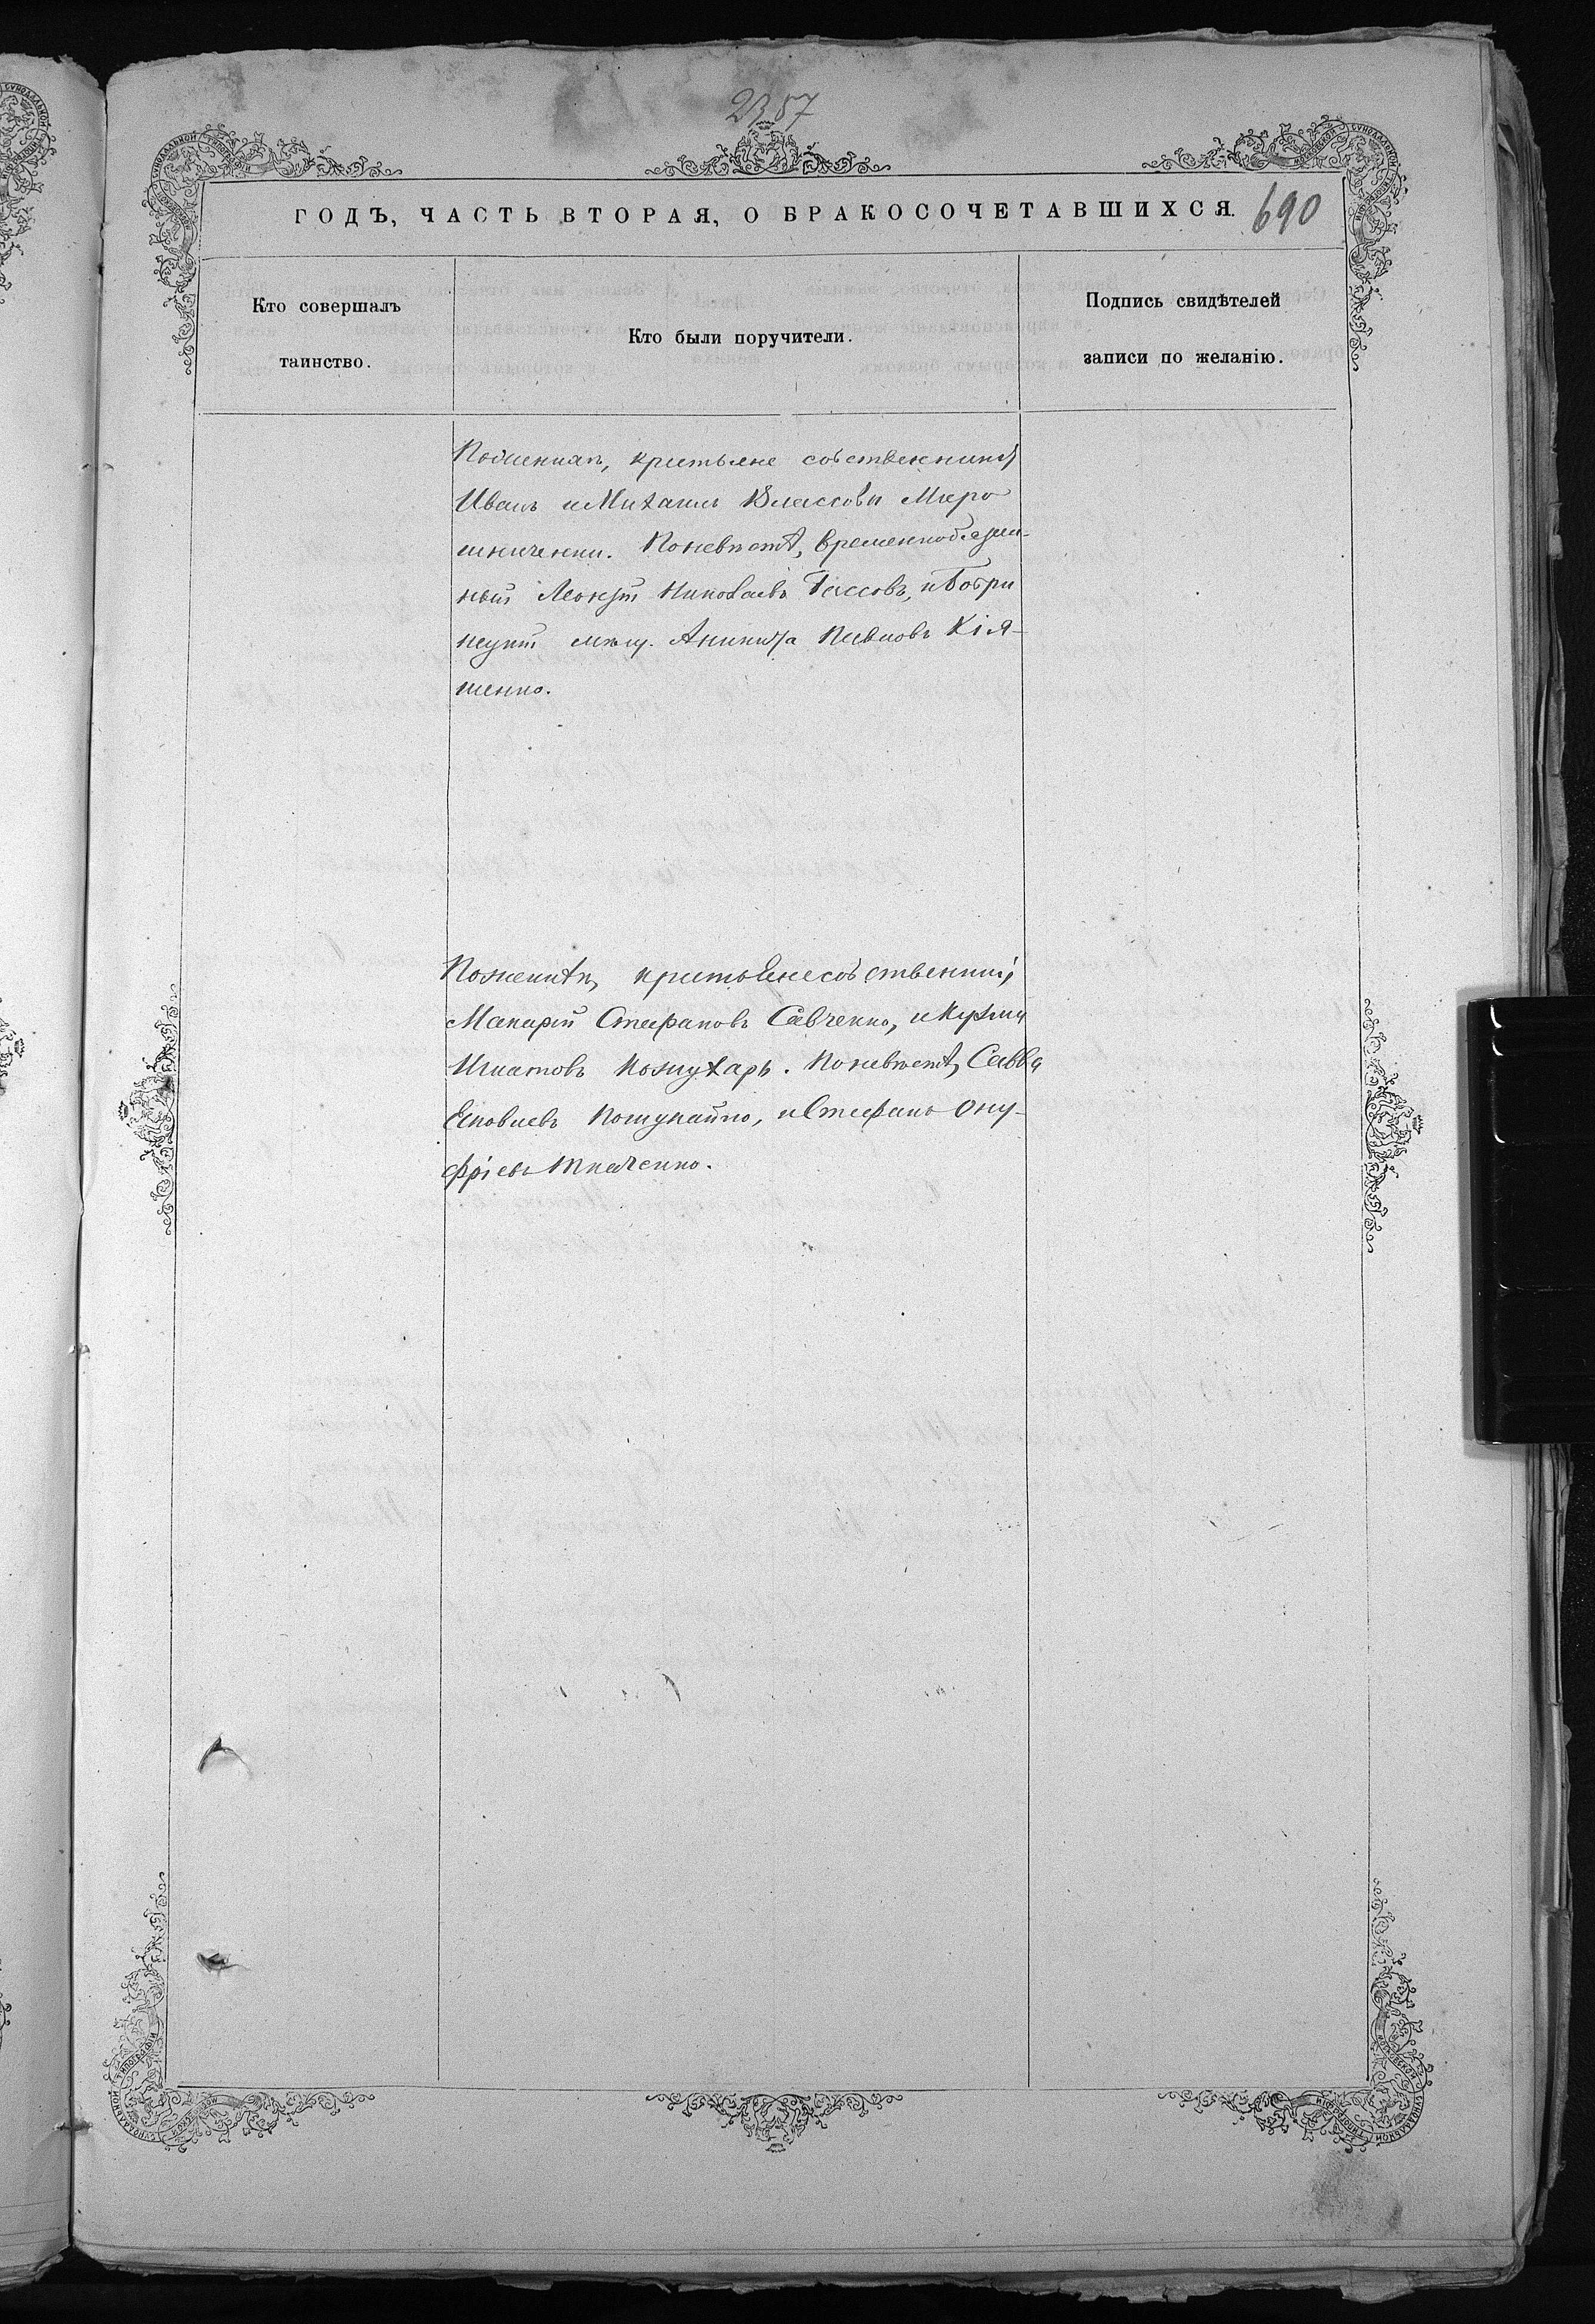 2357
ГОДЪ, ЧАСТЬ ВТОРАЯ, О БРАКОСОЧЕТАВШИХСЯ.
690
Кто совершалъ
таинство.
Кто были поручители.
Подпись свидѣтелей
записи по желанію.
крестьяне собственники
Иванъ и Михаилъ Власовы Миро
шниченки. По невѣстѣ, временнообязан-
ный Николаевъ и Бобри
нецкій мѣщ. Аникита Кія-
шенко.
По женихѣ, крестьяне собственники,
Макарій Стефановъ Савченко, и Кузма
Игнатовъ Кожухарь. По невѣстѣ, Савва
Яковлевъ Пошукайло, и Стефанъ Ону-
фріевъ Ткаченко.